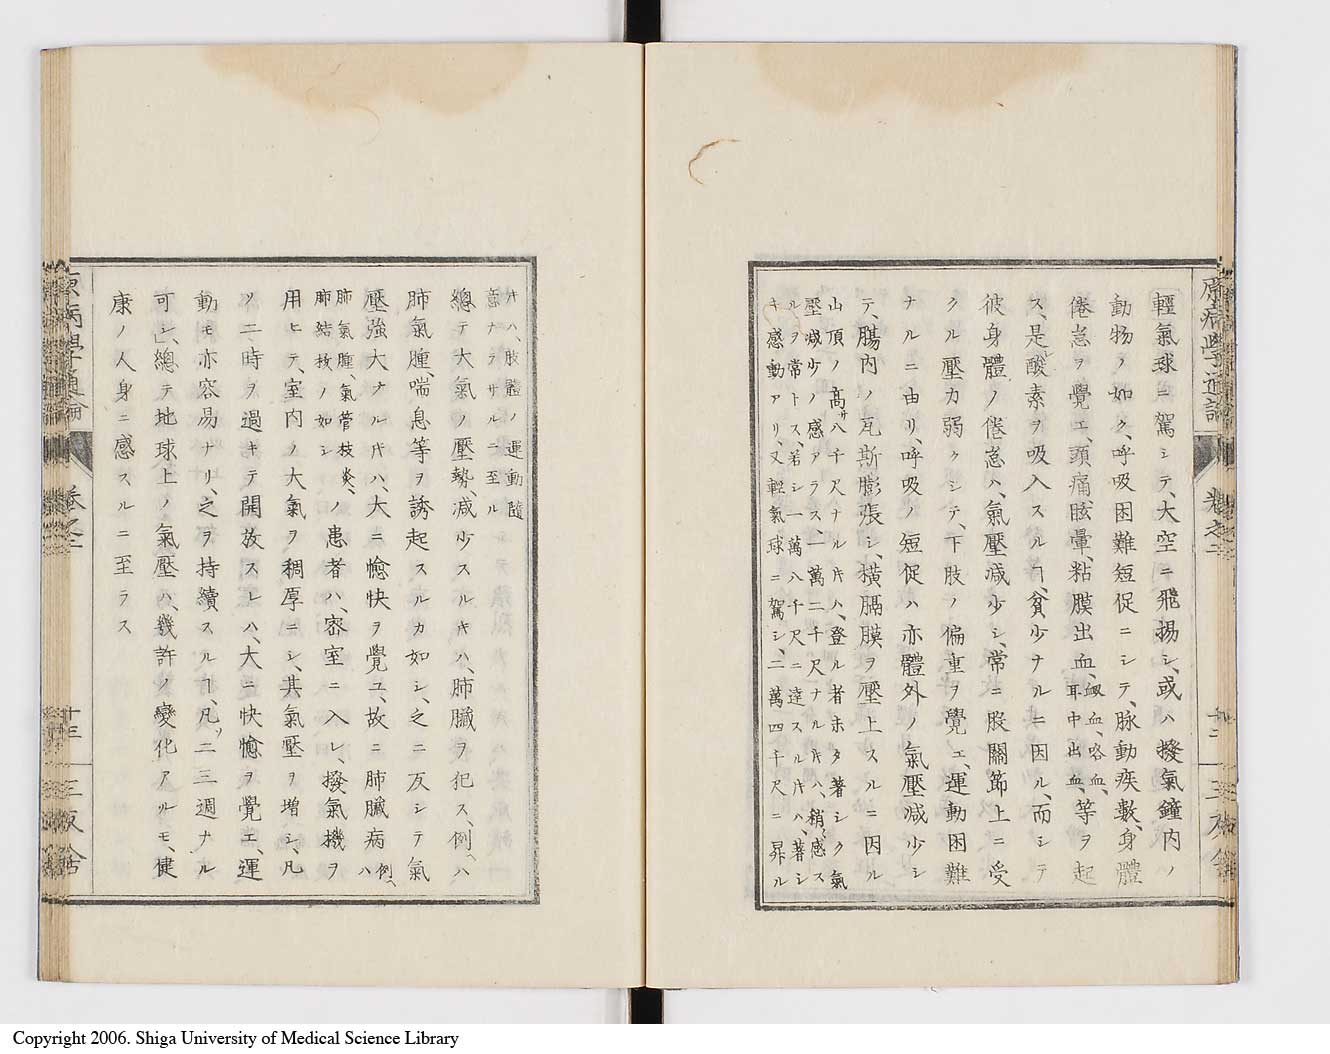 輕氣球ニ駕シテ、大空ニ飛揚シ、或ハ撥氣鐘内ノ
動物ノ如ク、呼吸困難短促ニシテ、脉動疾數、身體
倦怠ヲ覺エ、頭痛、眩暈、粘膜出血、衂血、咯血、耳中出血、等ヲ起
ス、是酸素ヲ吸入スルヿ、貧少ナルニ因ル、而シテ
彼身體ノ倦怠ハ、氣壓減少シ、常ニ股關節上ニ受
クル壓力弱クシテ、下肢ノ偏重ヲ覺エ、運動困難
ナルニ由リ、呼吸ノ短促ハ亦體外ノ氣壓減少シ
テ、腸内ノ瓦斯膨張シ、横膈膜ヲ壓上スルニ因ル
山頂ノ高サ八千尺ナル𪜈ハ、登ル者ホタ著シク氣
壓減少ノ感アラス、一萬二千尺ナル𪜈ハ、稍感ス
ルヲ常トス、若シ一萬八千尺ニ達スル𪜈ハ、著シ
キ感動アリ、又輕氣球ニ駕シ、二萬四千尺ニ昇ル
原病學通論
卷之二
十二
三友舎
𪜈ハ、肢體ノ運動隨
意ナラサルニ至ル
總テ大氣ノ壓勢、減少スル𪜈ハ、肺臟ヲ犯ス、例ヘハ
肺氣腫、喘息等ヲ誘起スルカ如シ、之ニ反シテ氣
壓強大ナル𪜈ハ、大ニ愉快ヲ覺ユ、故ニ肺臟病例ヘハ
肺氣腫、氣管枝炎、
肺結核ノ如シノ患者ハ、密室ニ入レ、撥氣機ヲ
用ヒテ、室内ノ大氣ヲ稠厚ニシ、其氣壓ヲ増シ、凡
ソ二時ヲ過キテ開放スレハ、大ニ快愉ヲ覺エ、運
動モ亦容易ナリ、之ヲ持續スルヿ、凡ソ二三週ナル
可シ、總テ地球上ノ氣壓ハ、幾許ノ變化アルモ、健
康ノ人身ニ感スルニ至ラス
原病學通論
卷之二
十三
三友舎
Copyright 2006. Shiga University of Medical Science Library